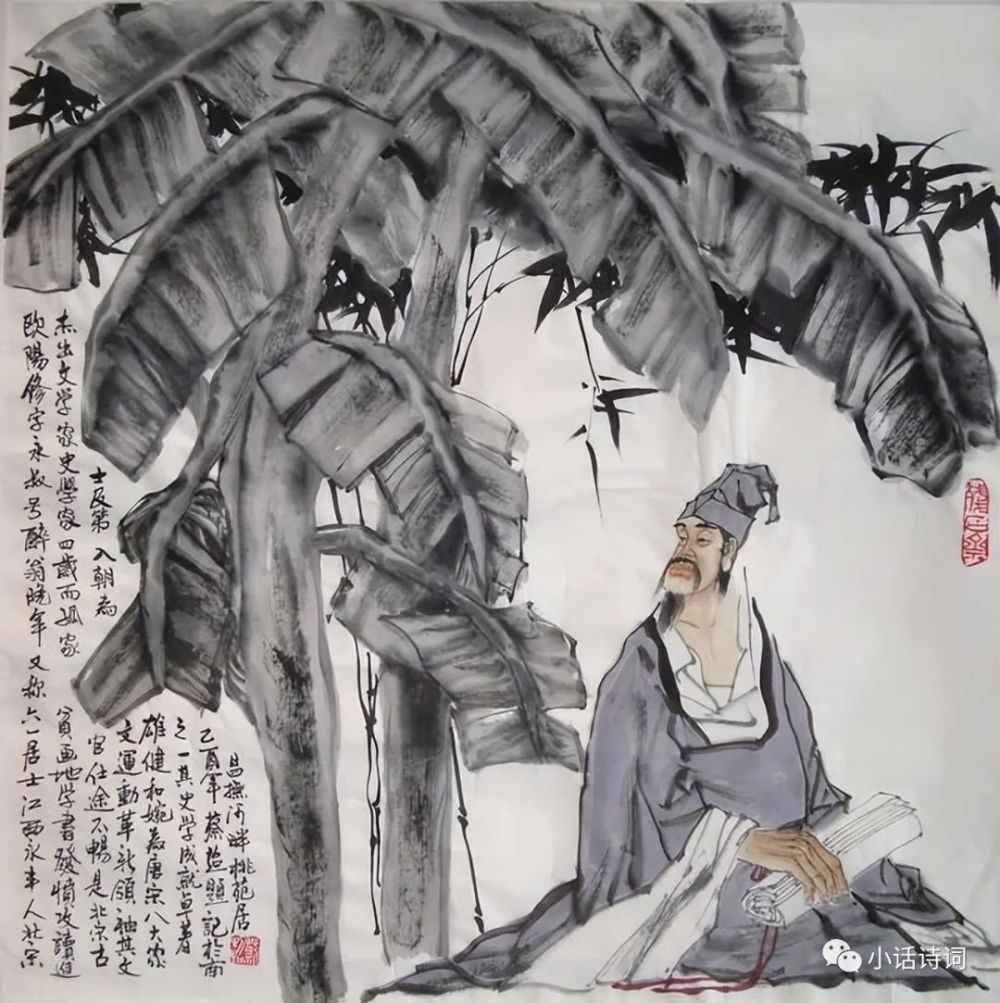 欧陽修字永叔号醉翁晚年又称六一居士江西永丰人北宋
杰出文学家史學家四歲而孤家貧画地学書發憤攻讀進
士及第入朝為官仕途不暢是北宋古
文運動革新領袖其文
雄健和婉為唐宋八大家
之一其史学成就卓著
乙酉年蔡益題記於南
昌撫河畔桃苑居
小话诗词